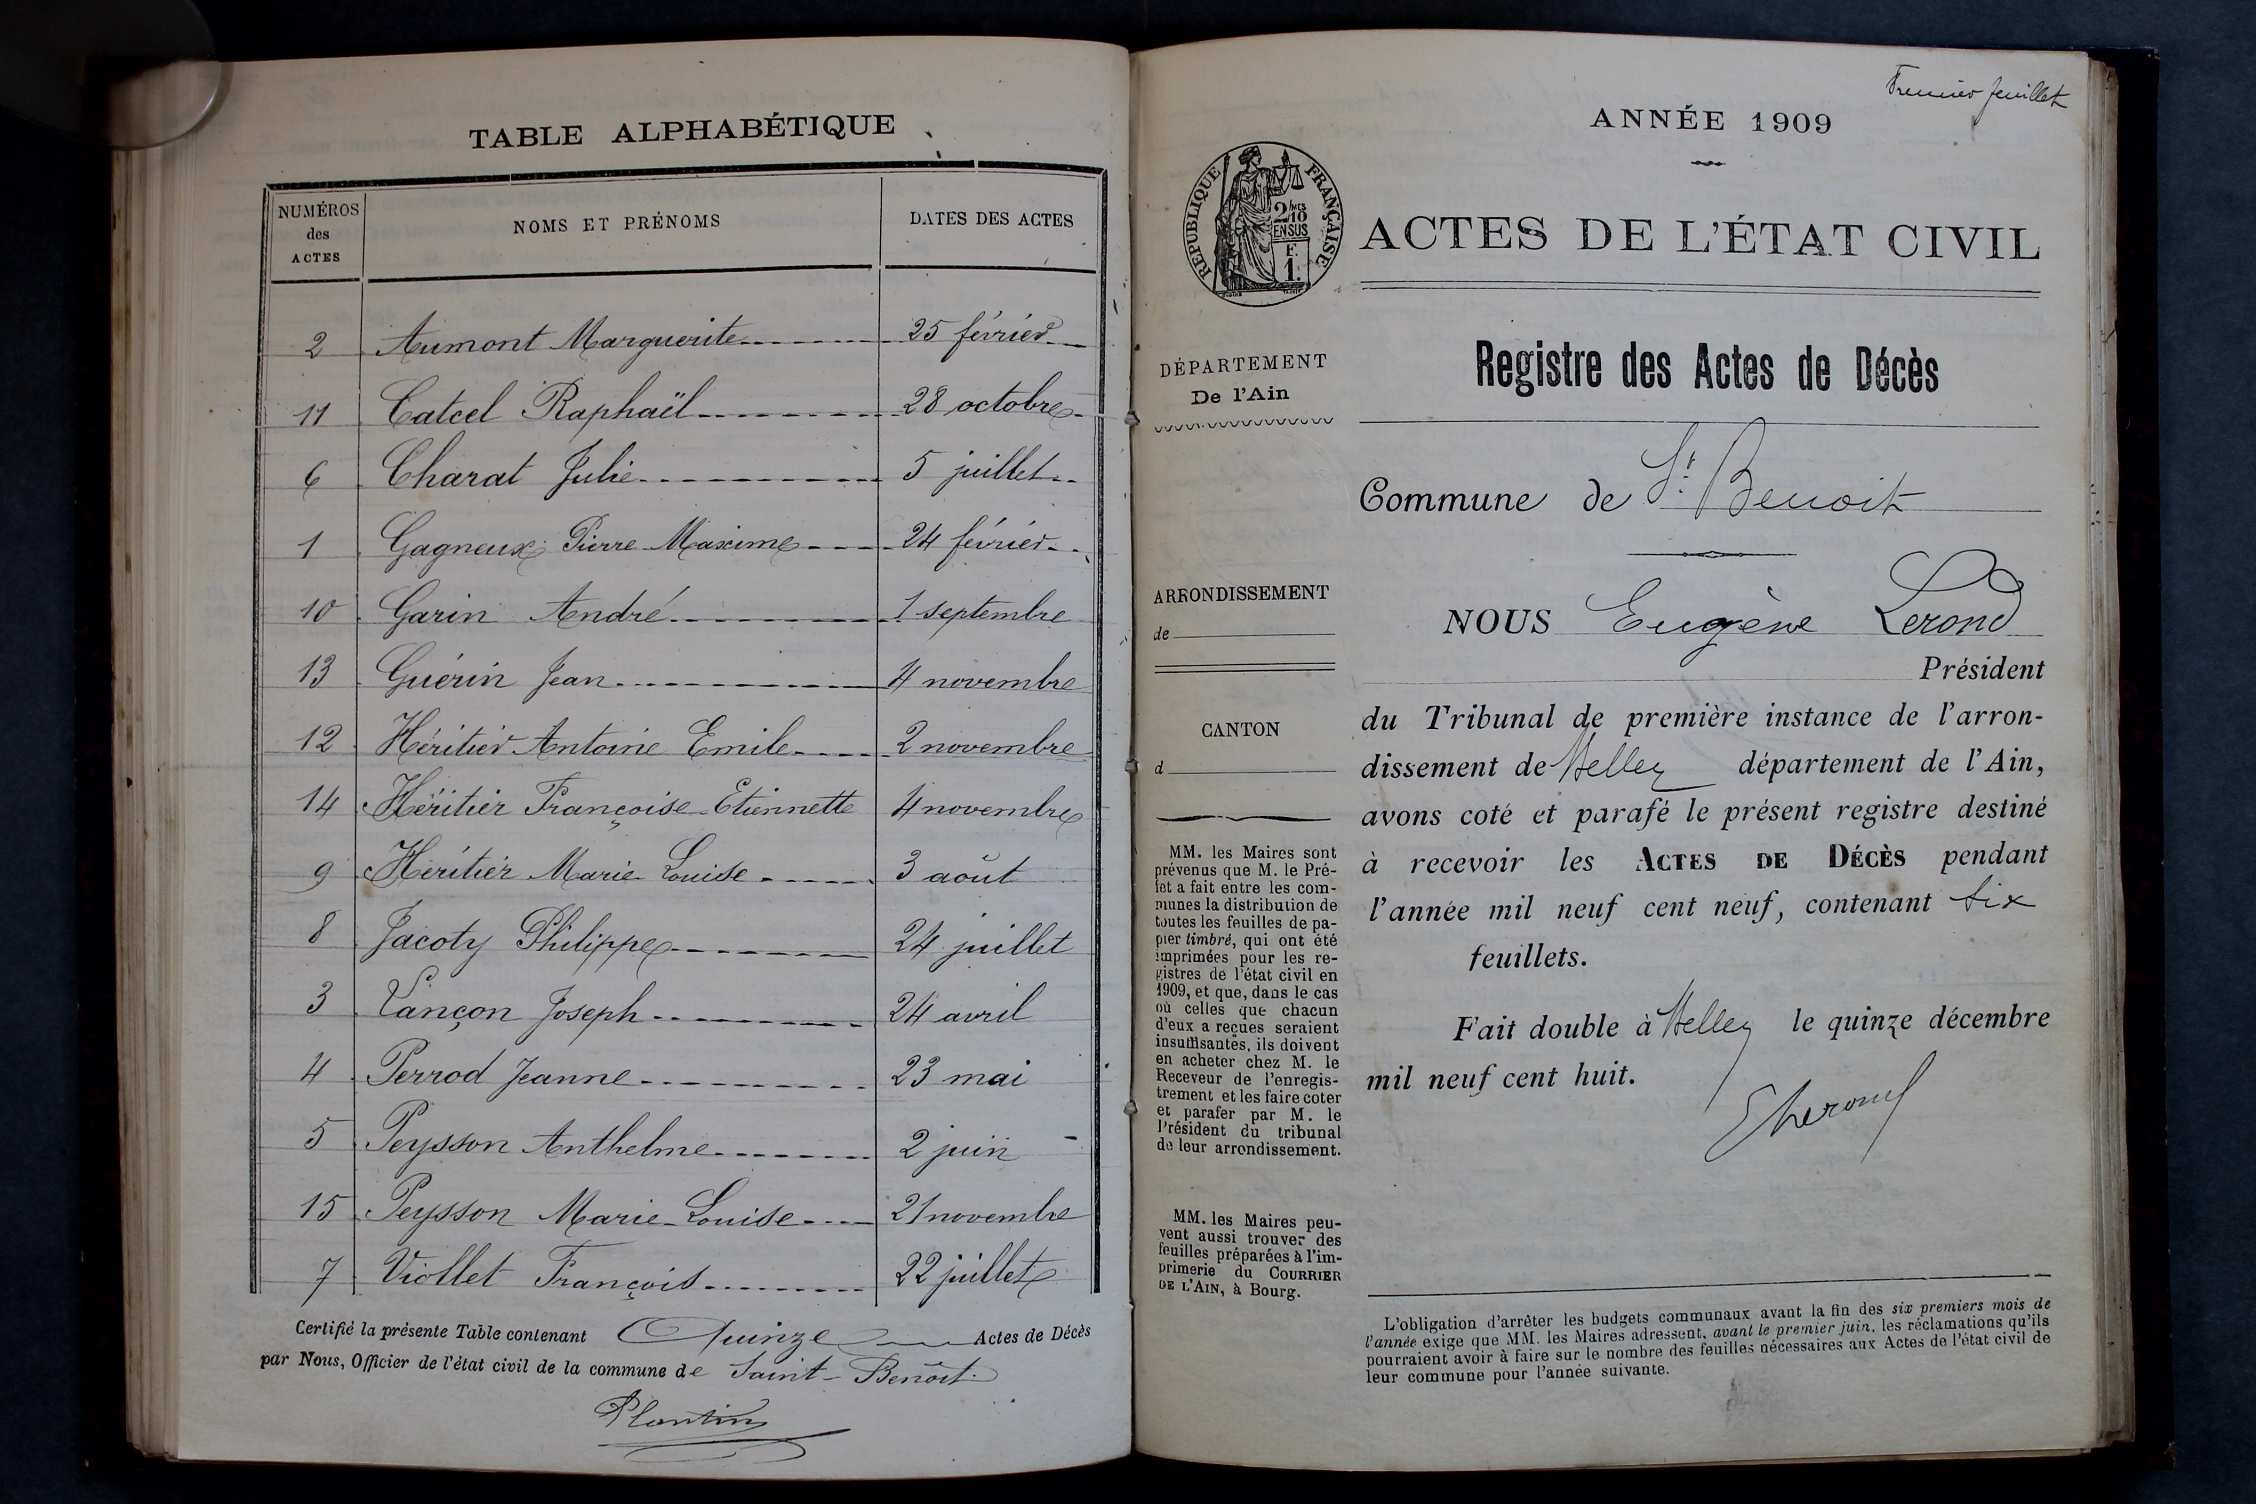 TABLE ALPHABÉTIQUE
NUMÉROS des ACTES NOMS ET PRÉNOMS DATES DES ACTES
2 Aumont Marguerite 25 février
11 Catcel Raphaël 28 octobre
6 Charat Julie 5 juillet
1 Gagneux Pierre Maxime 24 février
10 Garin André 1 septembre
13 Guérin Jean 4 novembre
12 Héritier Antoine Emile 2 novembre
14 Héritier Françoise Etiennette 4 novembre
9 Héritier Marie Louise 3 août
8 Jacoty Philippe 24 juillet
3 Lançon Joseph 24 avril
4 Perrod Jeanne 23 mai
5 Peysson Anthelme 2 juin
15 Peysson Marie-Louise 21 novembre
7 Viollet François 22 juillet
Certifié la présente Table contenant Quinze Actes de Décès
par Nous, Officier de l'état civil de la commune de Saint-Benoit.
Plantin
Premier feuillet
ANNÉE 1909
RÉPUBLIQUE FRANÇAISE
2/10 MES
EN SUS
F.
1.
ACTES DE L'ÉTAT CIVIL
DÉPARTEMENT
De l'Ain
ARRONDISSEMENT
de
CANTON
d
MM. les Maires sont
prévenus que M. le Pré-
fet a fait entre les com-
munes la distribution de
toutes les feuilles de pa-
pier timbré, qui ont été
imprimées pour les re-
gistres de l'état civil en
1909, et que, dans le cas
où celles que chacun
d'eux a reçues seraient
insuffisantes, ils doivent
en acheter chez M. le
Receveur de l'enregis-
trement et les faire coter
et parafer par M. le
Président du tribunal
de leur arrondissement.
MM. les Maires peu-
vent aussi trouver des
feuilles préparées à l'im-
primerie du COURRIER
DE L'AIN, à Bourg.
Registre des Actes de Décès
Commune de St. Benoit
NOUS Eugène Lerond
Président
du Tribunal de première instance de l'arron-
dissement de Belley département de l'Ain,
avons coté et parafé le présent registre destiné
à recevoir les ACTES DE DÉCÈS pendant
l'année mil neuf cent neuf, contenant six
feuillets.
Fait double à Belley le quinze décembre
mil neuf cent huit.
E Lerond
L'obligation d'arrêter les budgets communaux avant la fin des six premiers mois de
l'année exige que MM. les Maires adressent, avant le premier juin, les réclamations qu'ils
pourraient avoir à faire sur le nombre des feuilles nécessaires aux Actes de l'état civil de
leur commune pour l'année suivante.